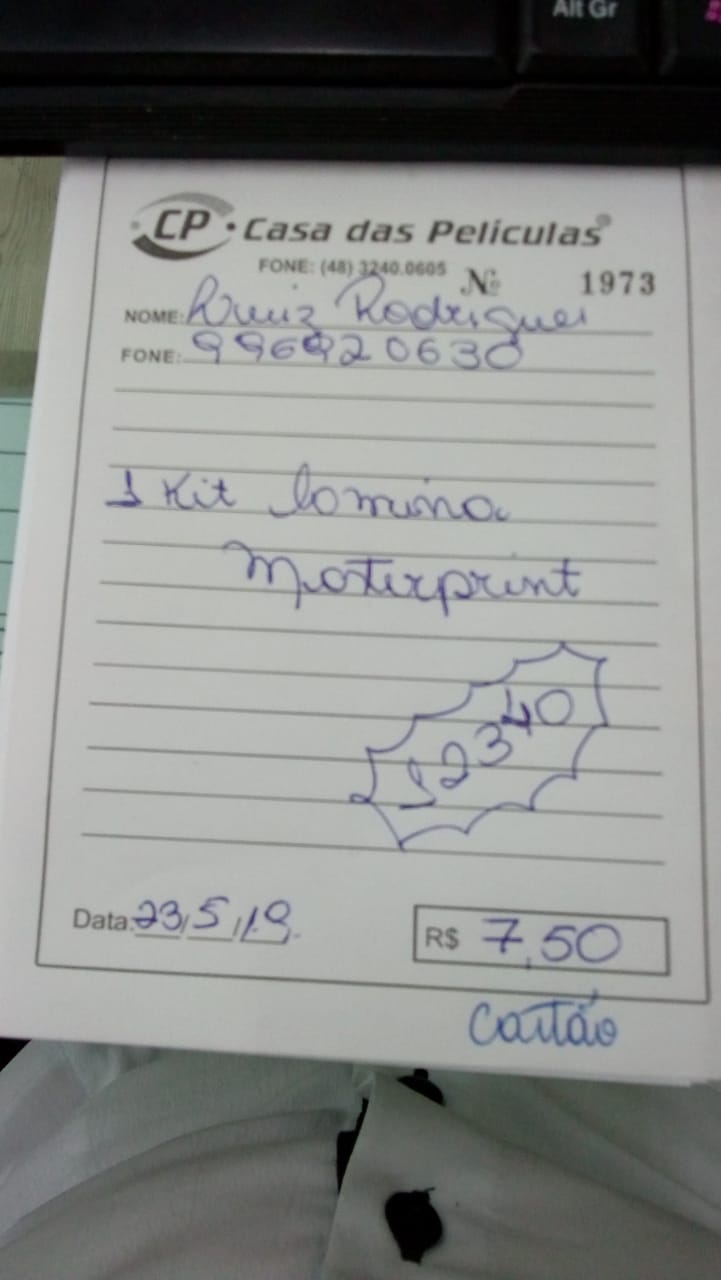 Alt Gr
CP Casa das Películas®
FONE: (48) 3240.0605 Nº 1973
NOME: Rodrigues
FONE: 996920630
1 Kit lamina
Masterprint
12340
Data: 23/5/19.
R$ 7,50
Cartão